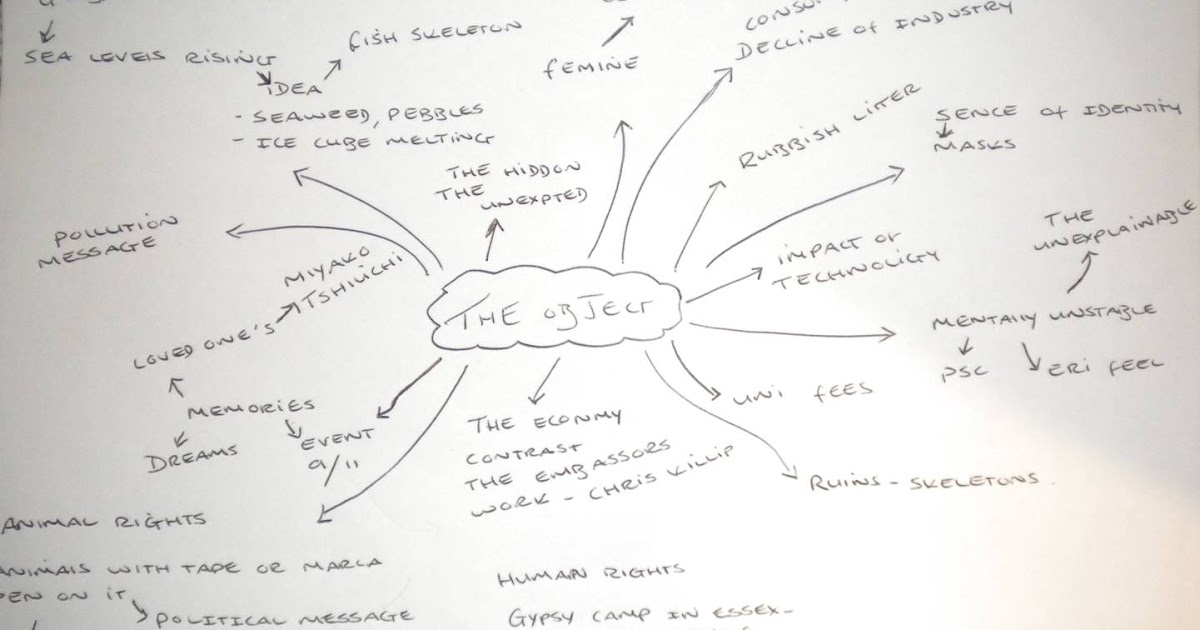 SEA LEVELS RISING
IDEA
FISH SKELETON
- SEAWEED, PEBBLES
- ICE CUBE MELTING
FEMINE
DECLINE OF INDUSTRY
RUBBISH LITTER
SENCE OF IDENTITY
MASKS
THE HIDDON
THE UNEXPTED
POLLUTION
MESSAGE
MIYAKO
LOVED ONE'S
MEMORIES
DREAMS
EVENT
9/11
THE OBJECT
IMPACT OF
TECHNOLIGY
THE
UNEXPLAINABLE
MENTALLY UNSTABLE
PSC
ERI FEEL
UNI FEES
RUINS - SKELETONS
THE ECONMY
CONTRAST
THE EMBASSORS
WORK - CHRIS KILLIP
ANIMAL RIGHTS
ANIMALS WITH TAPE OR MARCA
PEN ON IT
POLITICAL MESSAGE
HUMAN RIGHTS
GYPSY CAMP IN ESSEX-